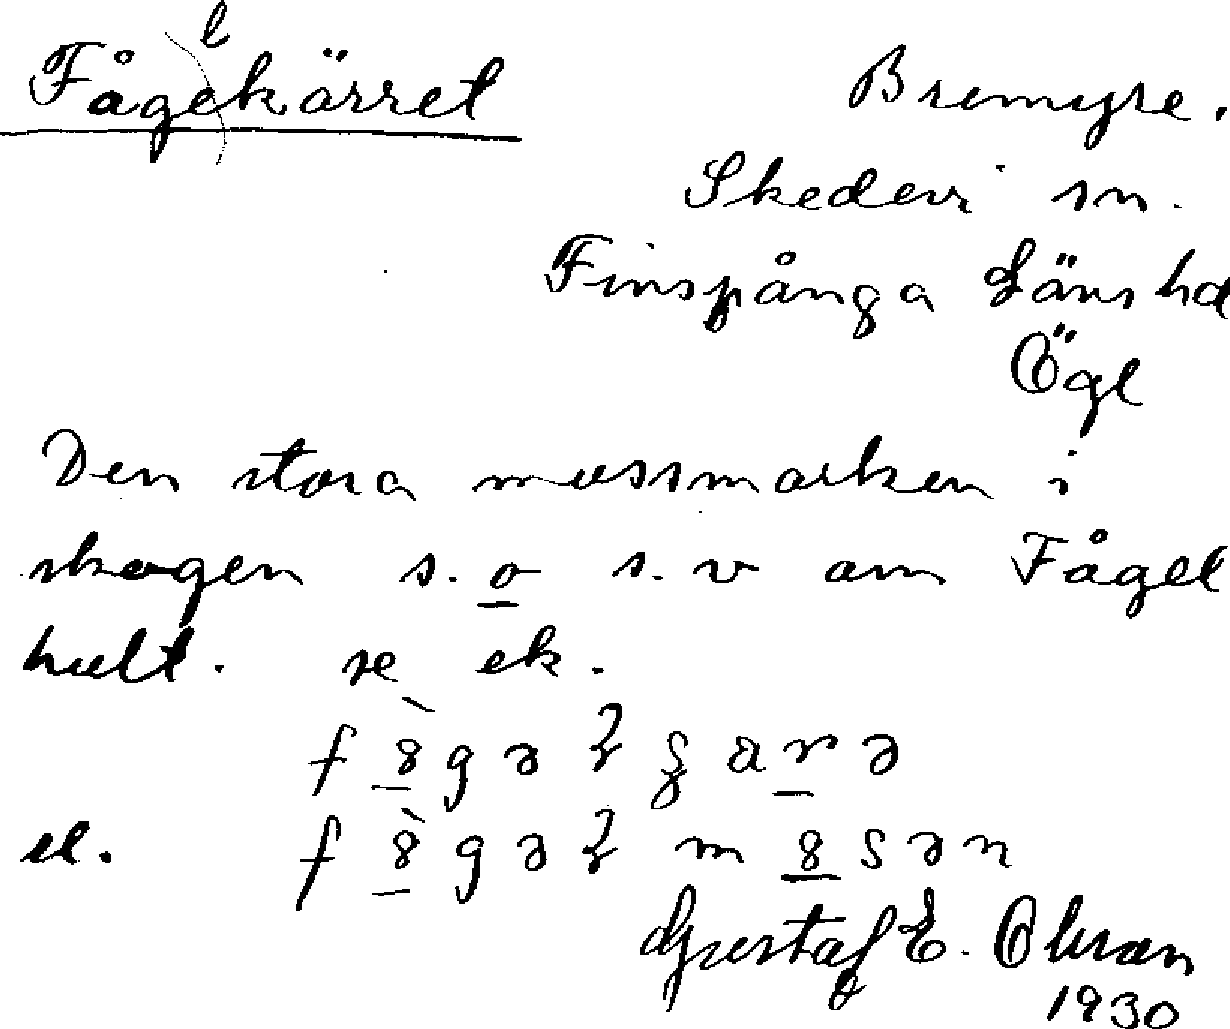 Fågelkärret
Bremyre.
Skedevi sn.
Finspånga Läns hd
Ögl
Den stora mossmarken i
skogen s. o s. v om Fågel
hult. se ek.
el.
Gustaf E. Olson
1930